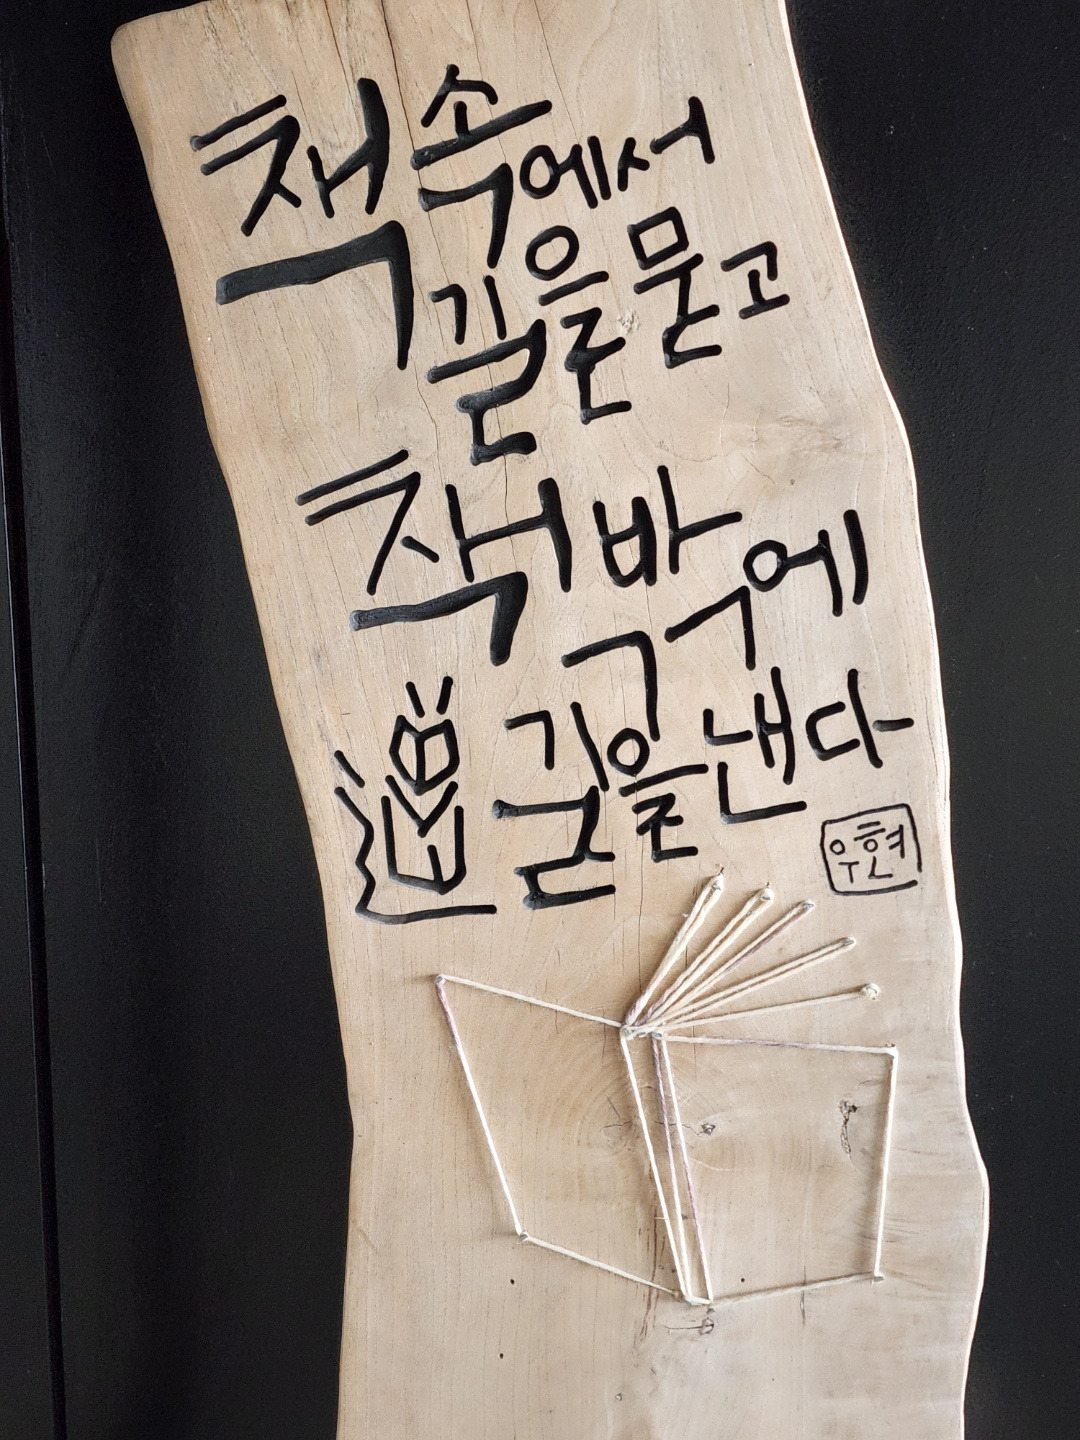 책 속에서
길을 묻고
책 밖에
길을 낸다
道
우현